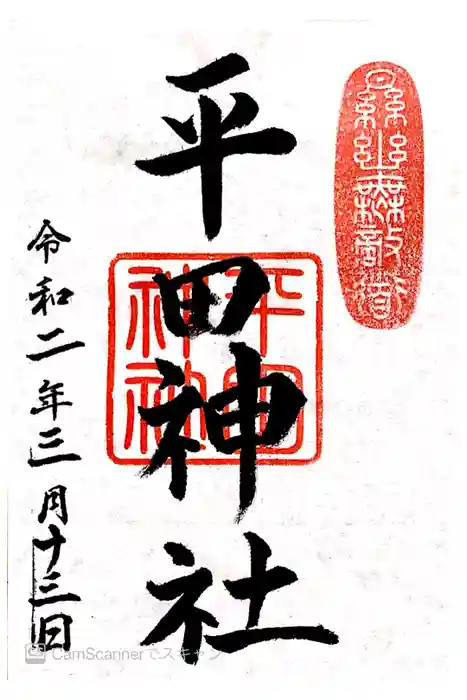 平田神社
平田
神社
令和二年三月十三日
CamScannerでスキャン